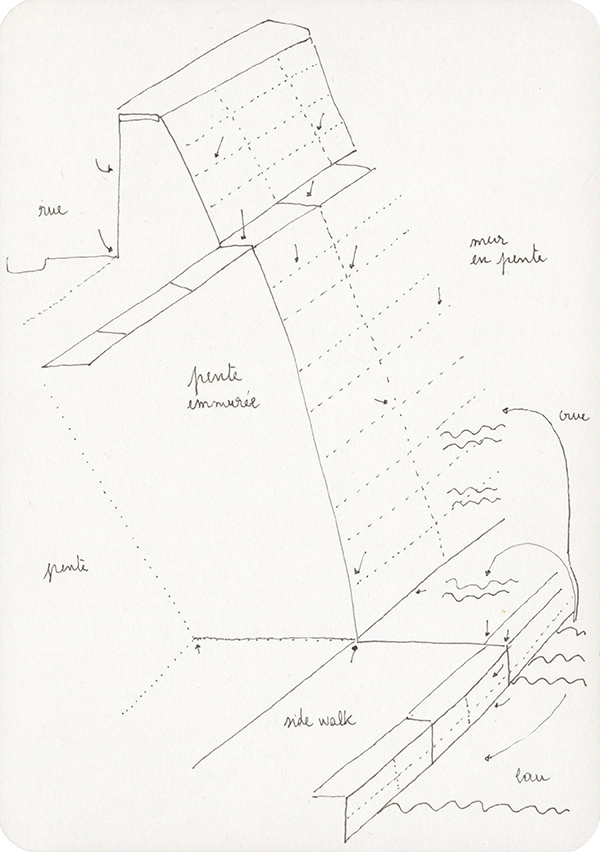 rue
mur
en pente
pente
emmurée
crue
pente
side walk
eau